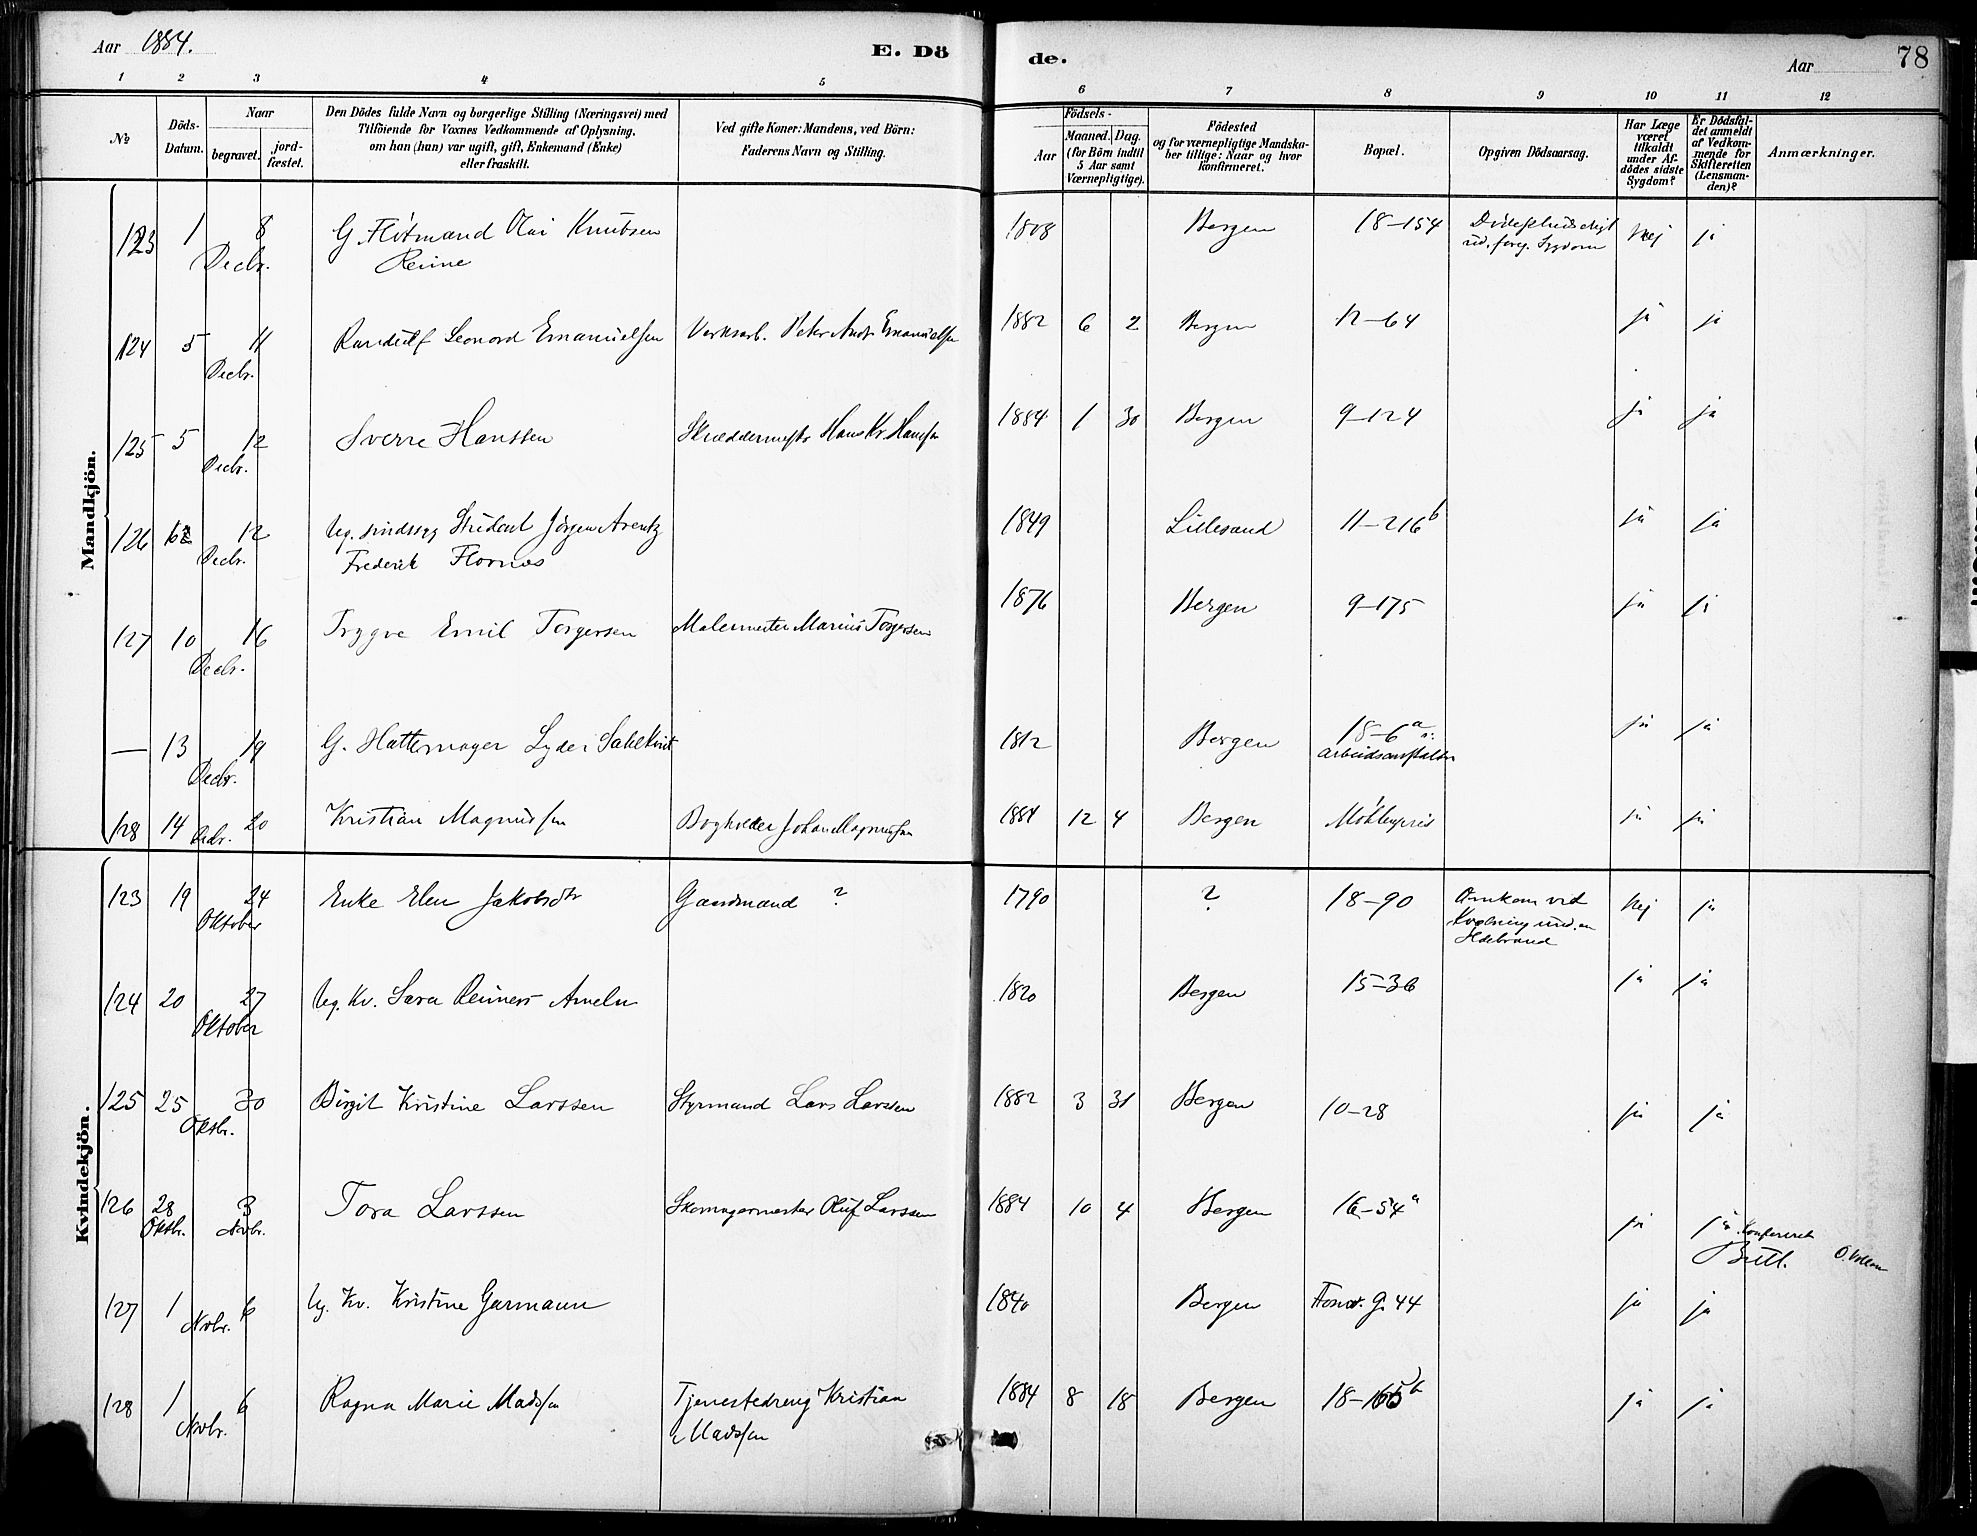 Aar 1884. E. Dö de. Aar 78
1 2 3 4 5 6 7 8 9 10 11 12
№
Döds-Datum.
Naar
begravet.
jord-fæstet.
Den Dödes fulde Navn og borgerlige Stilling (Næringsvei) med
Tilföiende for Voxnes Vedkommende af Oplysning,
om han (hun) var ugift, gift, Enkemand (Enke)
eller fraskilt.
Ved gifte Koner: Mandens, ved Börn:
Faderens Navn og Stilling.
Födsels-
Aar
Maaned.
Dag.
(for Börn indtil
5 Aar samt
Værnepligtige).
Födested
og for værnepligtige Mandska-
ber tillige: Naar og hvor
konfirmeret.
Bopæl.
Opgiven Dödsaarsag.
Har Læge
været
tilkaldt
under Af-
dödes sidste
Sygdom?
Er Dödsfal-
det anmeldt
af Vedkom-
mende for
Skifteretten
(Lensman-
den)?
Anmærkninger.
Mandkjön.
123 1 8 G. Flötmand Olai Knutsen 1808 Bergen 18-154 nej ja
Decbr.
124 5 11 Randulf Leonard Emanuelsen Verksarb. Peter Andr. Emanuelsen 1882 6 2 Bergen 12-64 ja ja
Decbr.
125 5 12 Sverre Hanssen Skræddermestr Hans Kr. Hansen 1884 1 30 Bergen 9-124 ja ja
Decbr.
126 12 Ug. sindssyg Student Jörgen Arentz 1849 Lillesand 11-216b ja ja
Decbr. Frederik
127 10 16 Trygve Emil Torgersen Malermester Marius Torgersen 1876 Bergen 9-175 ja ja
Decbr.
— 13 19 G. Hattemager Lyder Sahlkvist 1812 Bergen 18-6a ja ja
Decbr. Arbeidsanstalten
128 14 20 Kristian Magnussen Bogholder Johan Magnussen 1884 12 4 Bergen Möhlenpris ja ja
Decbr.
Kvindekjön.
123 19 24 Enke Elen Jakobsdtr Gaardmand ? 1790 ? 18-90 Omkom ved nej ja
Oktober Kvælning und. en
Ildebrand
124 20 27 Ug. Kv. Sara Reiners Ameln 1820 Bergen 15-36 ja ja
Oktober
125 25 30 Birgit Kristine Larssen Styrmand Lars Larssen 1882 3 31 Bergen 10-28 ja ja
Oktbr.
126 28 3 Tora Larssen Skomagermester Oluf Larssen 1884 10 4 Bergen 16-54a ja ja
Oktbr. Novbr. Konfereret
127 1 6 Ug. Kv. Kristine Garmann 1840 Bergen ja ja
Novbr.
128 1 6 Ragna Marie Madssen Tjenestedreng Kristian 1884 8 18 Bergen ja ja
Novbr. Madssen